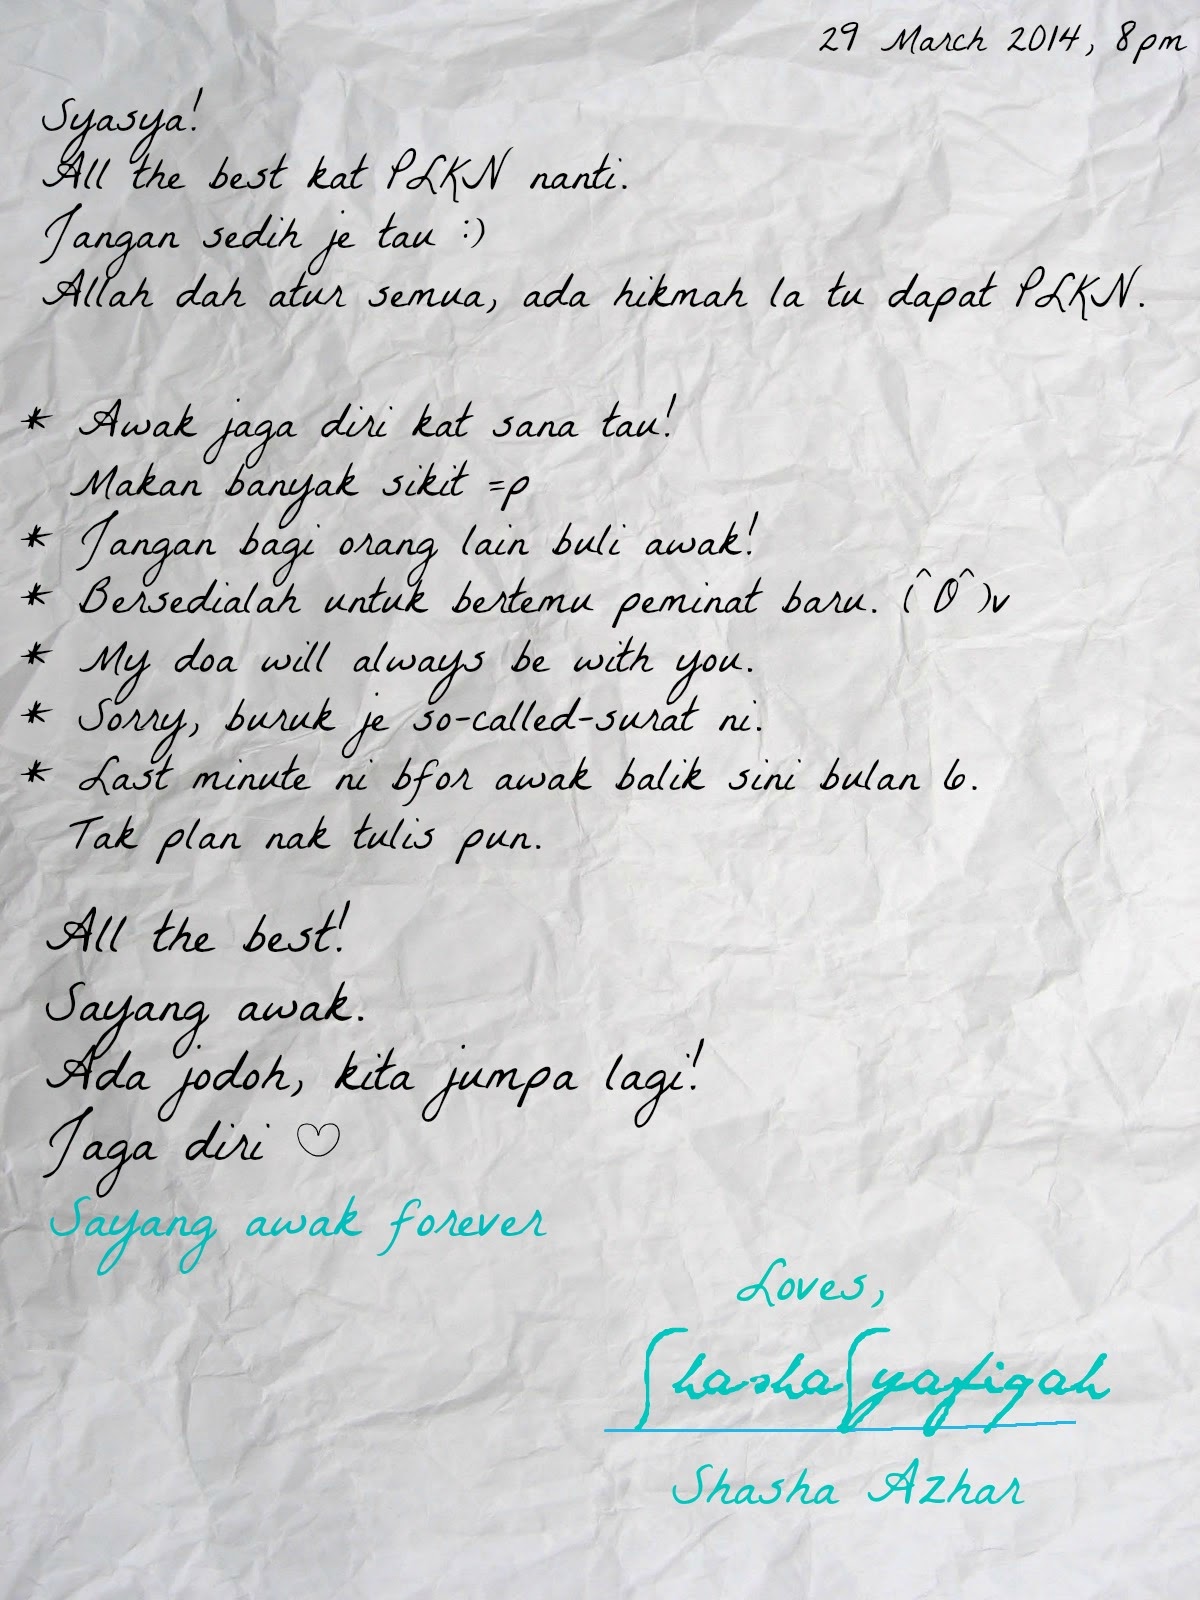 29 March 2014, 8pm
Syasya!
All the best kat PLKN nanti.
Jangan sedih je tau :)
Allah dah atur semua, ada hikmah la tu dapat PLKN.
* Awak jaga diri kat sana tau!
Makan banyak sikit =p
* Jangan bagi orang lain buli awak!
* Bersedialah untuk bertemu peminat baru. (^O^)v
* My doa will always be with you.
* Sorry, buruk je so-called-surat ni.
* Last minute ni bfor awak balik sini bulan 6.
Tak plan nak tulis pun.
All the best!
Sayang awak.
Ada jodoh, kita jumpa lagi!
Jaga diri ♡
Sayang awak forever
Loves,
Shasha Syafiqah
Shasha Azhar